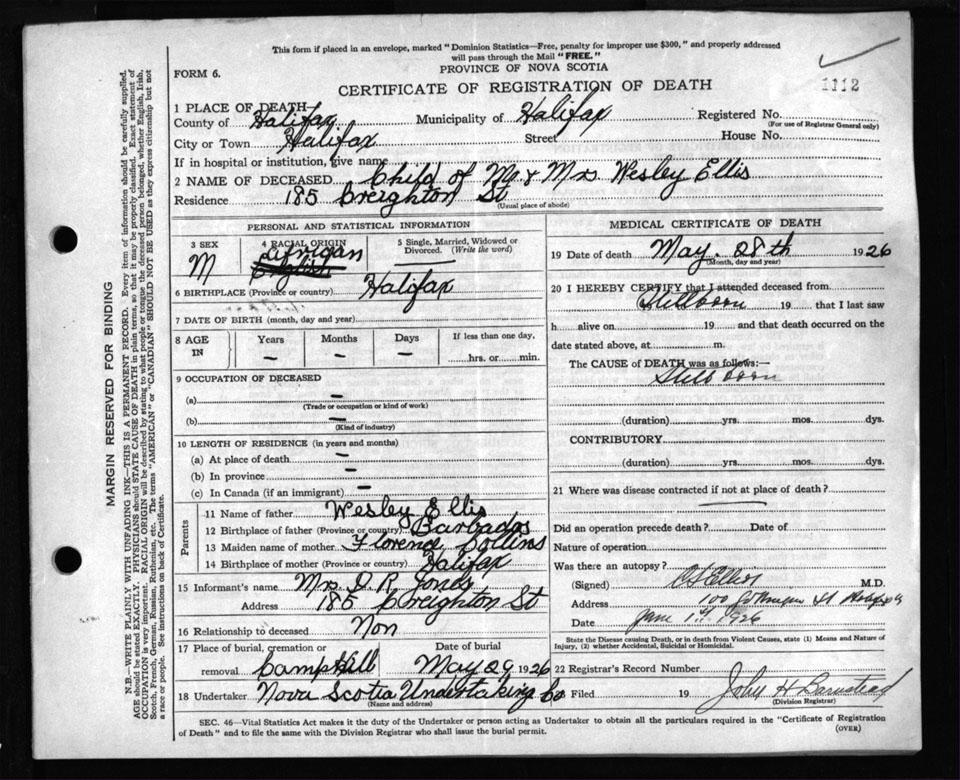 This form if placed in an envelope, marked "Dominion Statistics—Free, penalty for improper use $300," and properly addressed
will pass through the Mail "FREE."
PROVINCE OF NOVA SCOTIA
FORM 6.
CERTIFICATE OF REGISTRATION OF DEATH
1112
1 PLACE OF DEATH
County of Halifax Municipality of Halifax Registered No.
(For use of Registrar General only)
City or Town Halifax Street House No.
If in hospital or institution, give name
2 NAME OF DECEASED Child of Mr & Mrs Wesley Ellis
Residence 185 Creighton St
(Usual place of abode)
PERSONAL AND STATISTICAL INFORMATION
3 SEX M
4 RACIAL ORIGIN African
English
5 Single, Married, Widowed or Divorced. (Write the word)
6 BIRTHPLACE (Province or country) Halifax
7 DATE OF BIRTH (month, day and year)
8 AGE IN Years Months Days If less than one day,
— — — hrs. or min.
9 OCCUPATION OF DECEASED
(a) —
(Trade or occupation or kind of work)
(b) —
(Kind of industry)
10 LENGTH OF RESIDENCE (in years and months)
(a) At place of death —
(b) In province —
(c) In Canada (if an immigrant) —
Parents
11 Name of father Wesley Ellis
12 Birthplace of father (Province or country) Barbados
13 Maiden name of mother Florence Collins
14 Birthplace of mother (Province or country) Halifax
15 Informant's name Mrs D. R. Jones
Address 185 Creighton St
16 Relationship to deceased Non
17 Place of burial, cremation or Date of burial
removal Camp Hill May 29 1926
18 Undertaker Nova Scotia Undertaking Co
(Name and address)
MEDICAL CERTIFICATE OF DEATH
19 Date of death May. 28th 1926
(Month, day and year)
20 I HEREBY CERTIFY that I attended deceased from
Stillborn 19 that I last saw
h alive on 19 and that death occurred on the
date stated above, at m.
The CAUSE of DEATH was as follows:—
Stillborn
(duration) yrs. mos. dys.
CONTRIBUTORY
(duration) yrs. mos. dys.
21 Where was disease contracted if not at place of death?
Did an operation precede death? Date of
Nature of operation
Was there an autopsy?
(Signed) M.D.
Address 100
Date June 1st 1926
State the Disease causing Death, or in death from Violent Causes, state (1) Means and Nature of
Injury, (2) whether Accidental, Suicidal or Homicidal.
22 Registrar's Record Number
Filed 19 John H Barnstead
(Division Registrar)
SEC. 46—Vital Statistics Act makes it the duty of the Undertaker or person acting as Undertaker to obtain all the particulars required in the "Certificate of Registration
of Death" and to file the same with the Division Registrar who shall issue the burial permit.
(OVER)
MARGIN RESERVED FOR BINDING
N.B.—WRITE PLAINLY WITH UNFADING INK—THIS IS A PERMANENT RECORD. Every item of information should be carefully supplied.
AGE should be stated EXACTLY. PHYSICIANS should STATE CAUSE OF DEATH in plain terms, so that it may be properly classified. Exact statement of
OCCUPATION is very important. RACIAL ORIGIN will be described by stating to what people or tongue the deceased person belonged, whether English, Irish,
Scotch, French, German, Russian, Ruthenian, etc. The terms "AMERICAN" or "CANADIAN" SHOULD NOT BE USED as they express citizenship but not
a race or people. See instructions on back of Certificate.